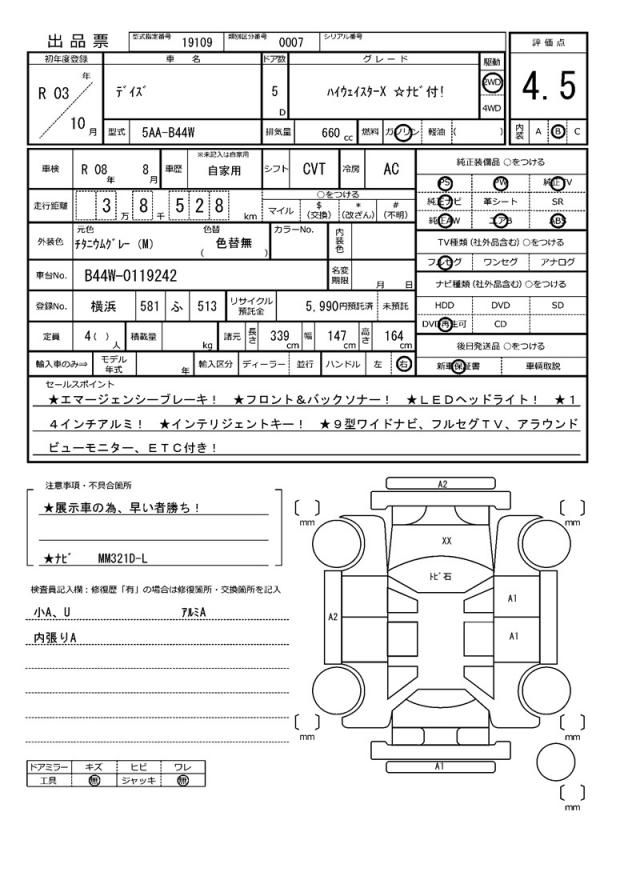 出品票 型式指定番号 19109 類別区分番号 0007 シリアル番号
初年度登録 車名 ドア数 グレード 駆動 評価点
R 03 年 10 月 ﾃﾞｲｽﾞ 5 D ﾊｲｳｪｲｽﾀｰX ☆ﾅﾋﾞ付! 2WD 4WD 4.5
型式 5AA-B44W 排気量 660 cc 燃料 ガソリン 軽油 ( ) 内装 A B C
車検 R 08 年 8 月 車歴 ※未記入は自家用 自家用 シフト CVT 冷房 AC 純正装備品 ○をつける
PS PW 純正TV
走行距離 3 万 8 千 5 2 8 km ○をつける マイル $ (交換) * (改ざん) # (不明) 純正ナビ 革シート SR
純正AW エアB ABS
外装色 元色 ﾁﾀﾆｳﾑｸﾞﾚｰ (M) 色替 ( 色替無 ) カラーNo. 内装色 TV種類(社外品含む)○をつける
フルセグ ワンセグ アナログ
車台No. B44W-0119242 名変期限 月 日 ナビ種類(社外品含む)○をつける
登録No. 横浜 581 ふ 513 リサイクル預託金 5,990円預託済 未預託 HDD DVD SD
DVD再生可 CD
定員 4( ) 人 積載量 kg 諸元 長さ 339 cm 幅 147 cm 高さ 164 cm 後日発送品 ○をつける
輸入車のみ⇒ モデル年式 年 輸入区分 ディーラー 並行 ハンドル 左 右 新車保証書 車輌取説
セールスポイント
★エマージェンシーブレーキ！ ★フロント＆バックソナー！ ★ＬＥＤヘッドライト！ ★１
４インチアルミ！ ★インテリジェントキー！ ★９型ワイドナビ、フルセグＴＶ、アラウンド
ビューモニター、ＥＴＣ付き！
注意事項・不具合箇所
★展示車の為、早い者勝ち！
★ﾅﾋﾞ MM321D-L
検査員記入欄：修復歴「有」の場合は修復箇所・交換箇所を記入
小A、U ｱﾙﾐA
内張りA
ドアミラー キズ ヒビ ワレ
工具 無 ジャッキ 無
A2
mm
mm
XX
ﾄﾋﾞ石
A1
A2
A1
mm
mm
A1
mm